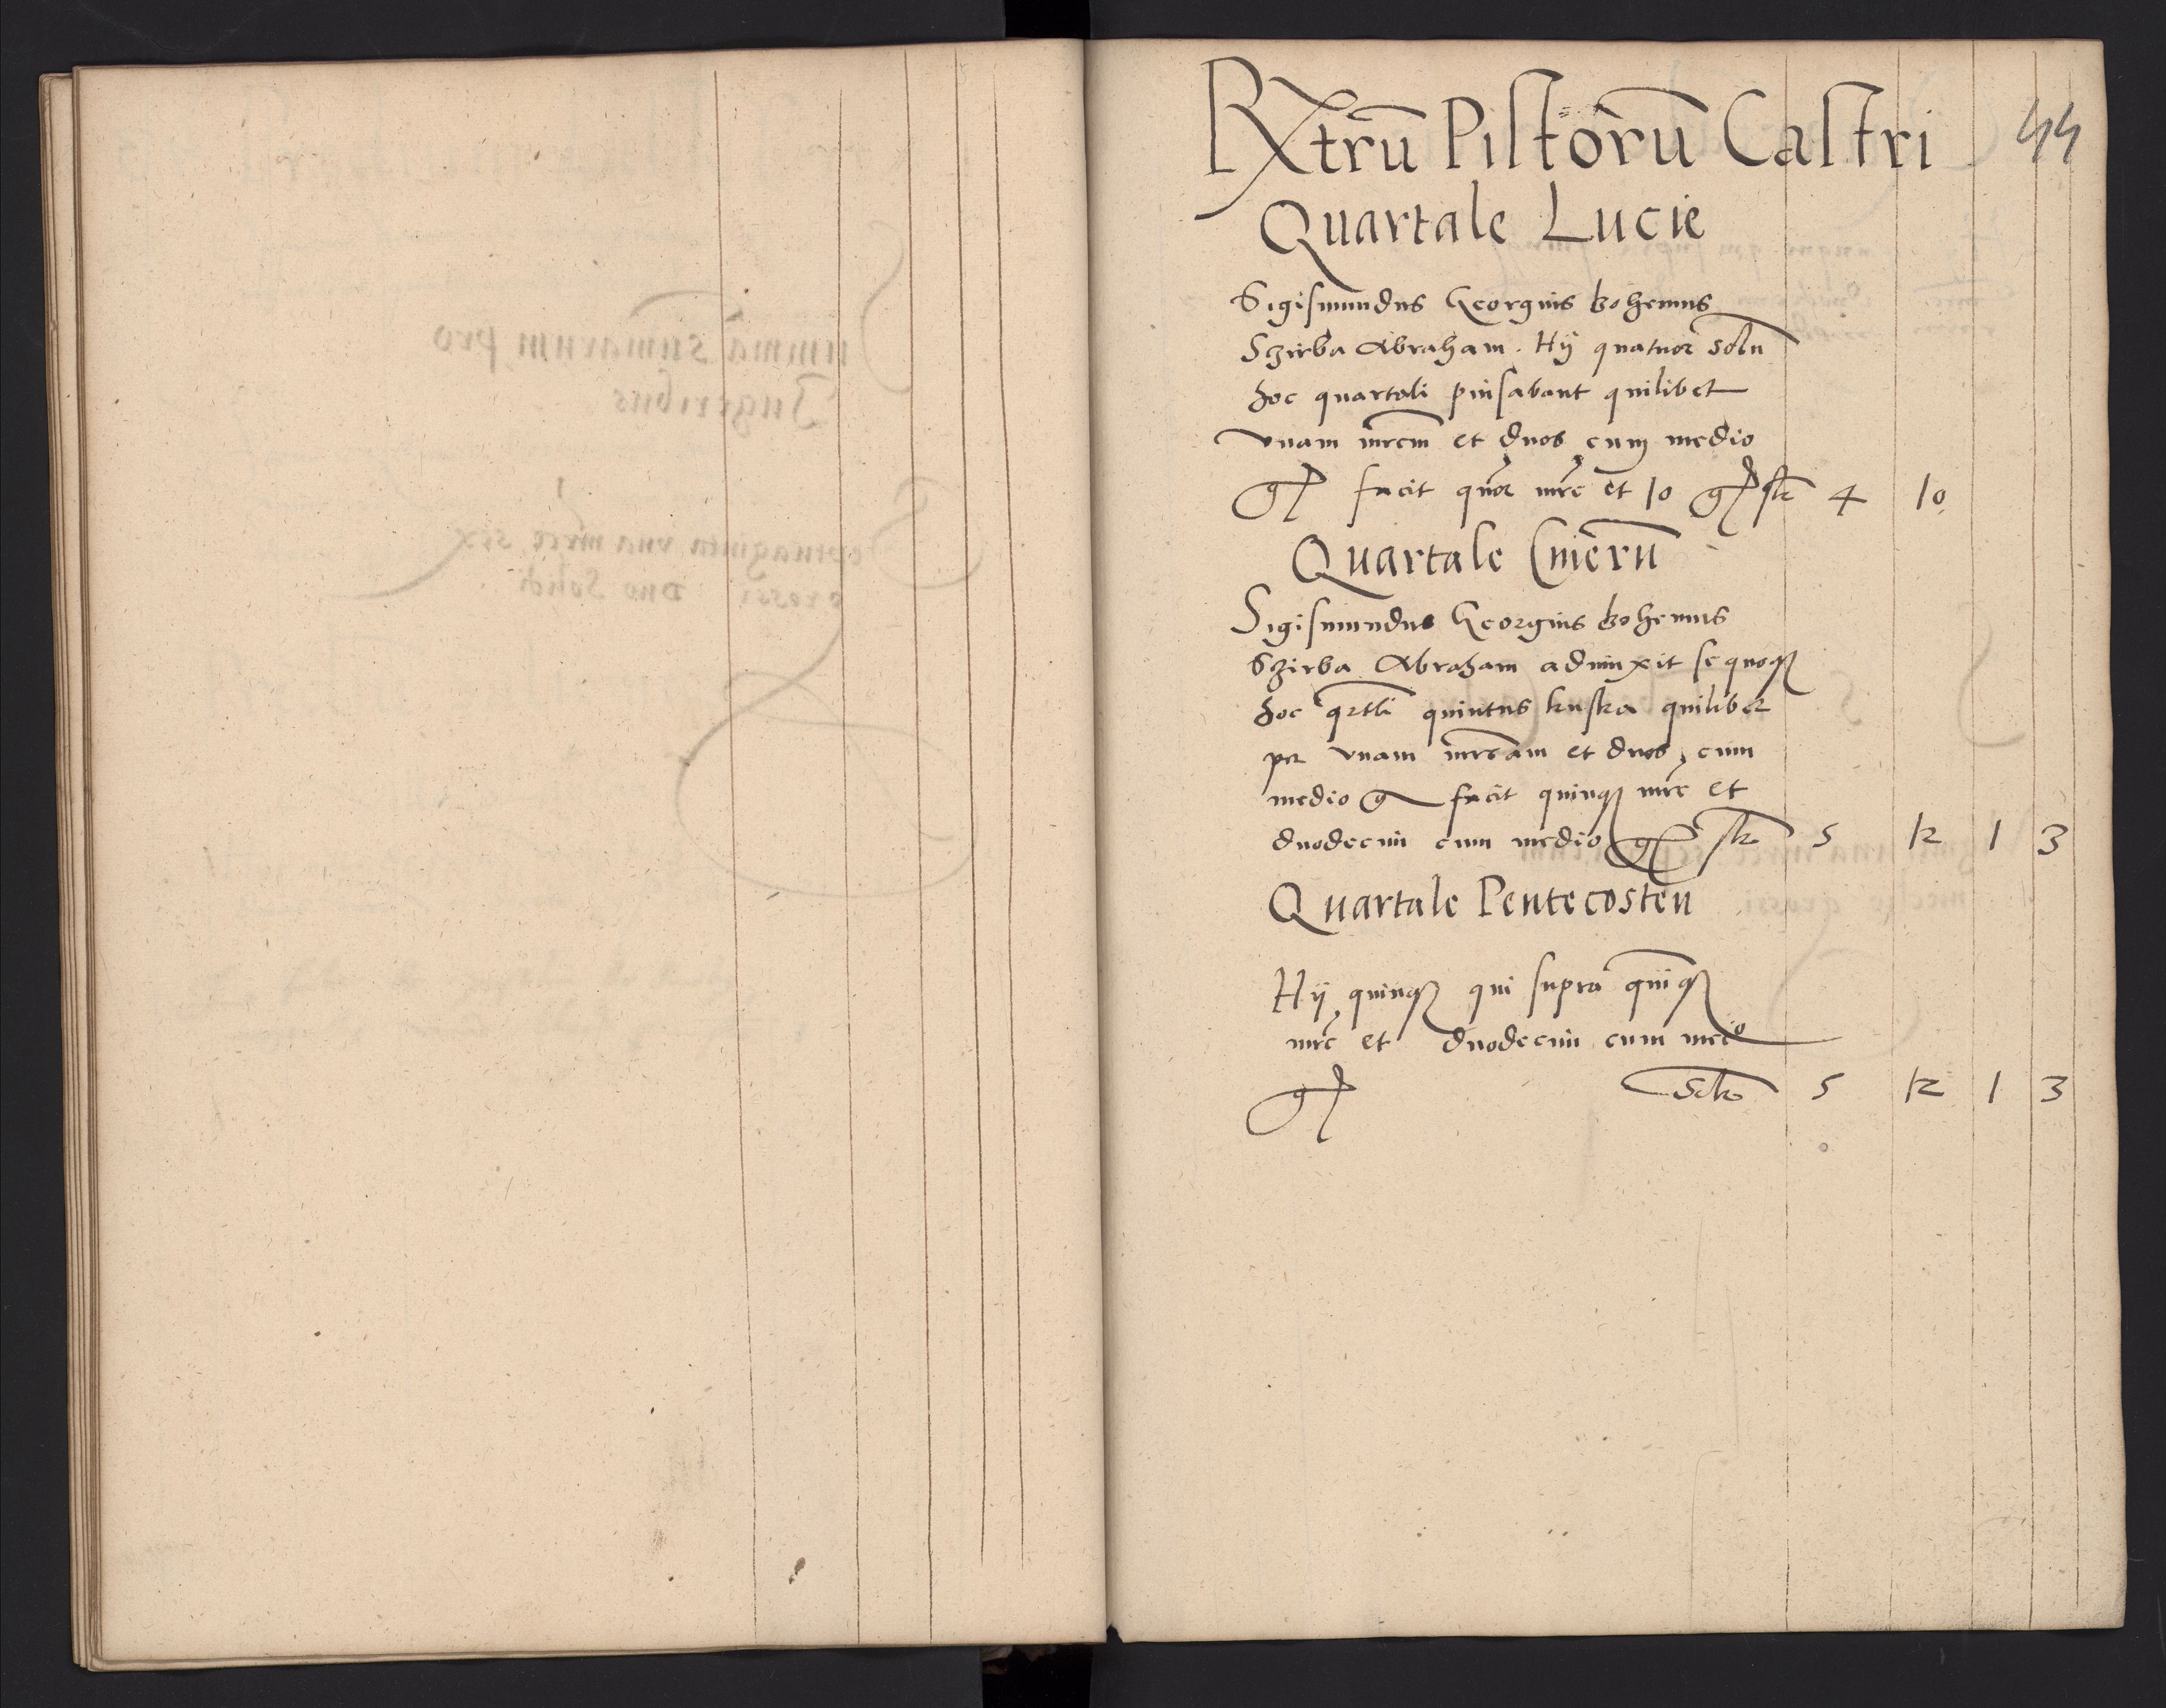 Rxtrū Pistorū Castri 44
Quartale Lucie
Sigismundus Georgius bohemus
Szirba Abraham. Hij quatuor solū
hoc quartali pinsabant quilibet
vnam mrcm et duos cum medio
gr facit quor mrc et 10 gr 4 10
Quartale Cinerū
Sigismundus Georgius bohemus
Szirba Abraham adiunxit se quoqz
hoc qrtli quintus kuska quilibet
per vnam mrcam et duos cum
medio g facit quinqz mrc et
duodecim cum medio gr 5 12 1 3
Quartale Pentecosten
Hij quinqz qui supra quiqz
mrc et duodecim cum medio
gr 5 12 1 3